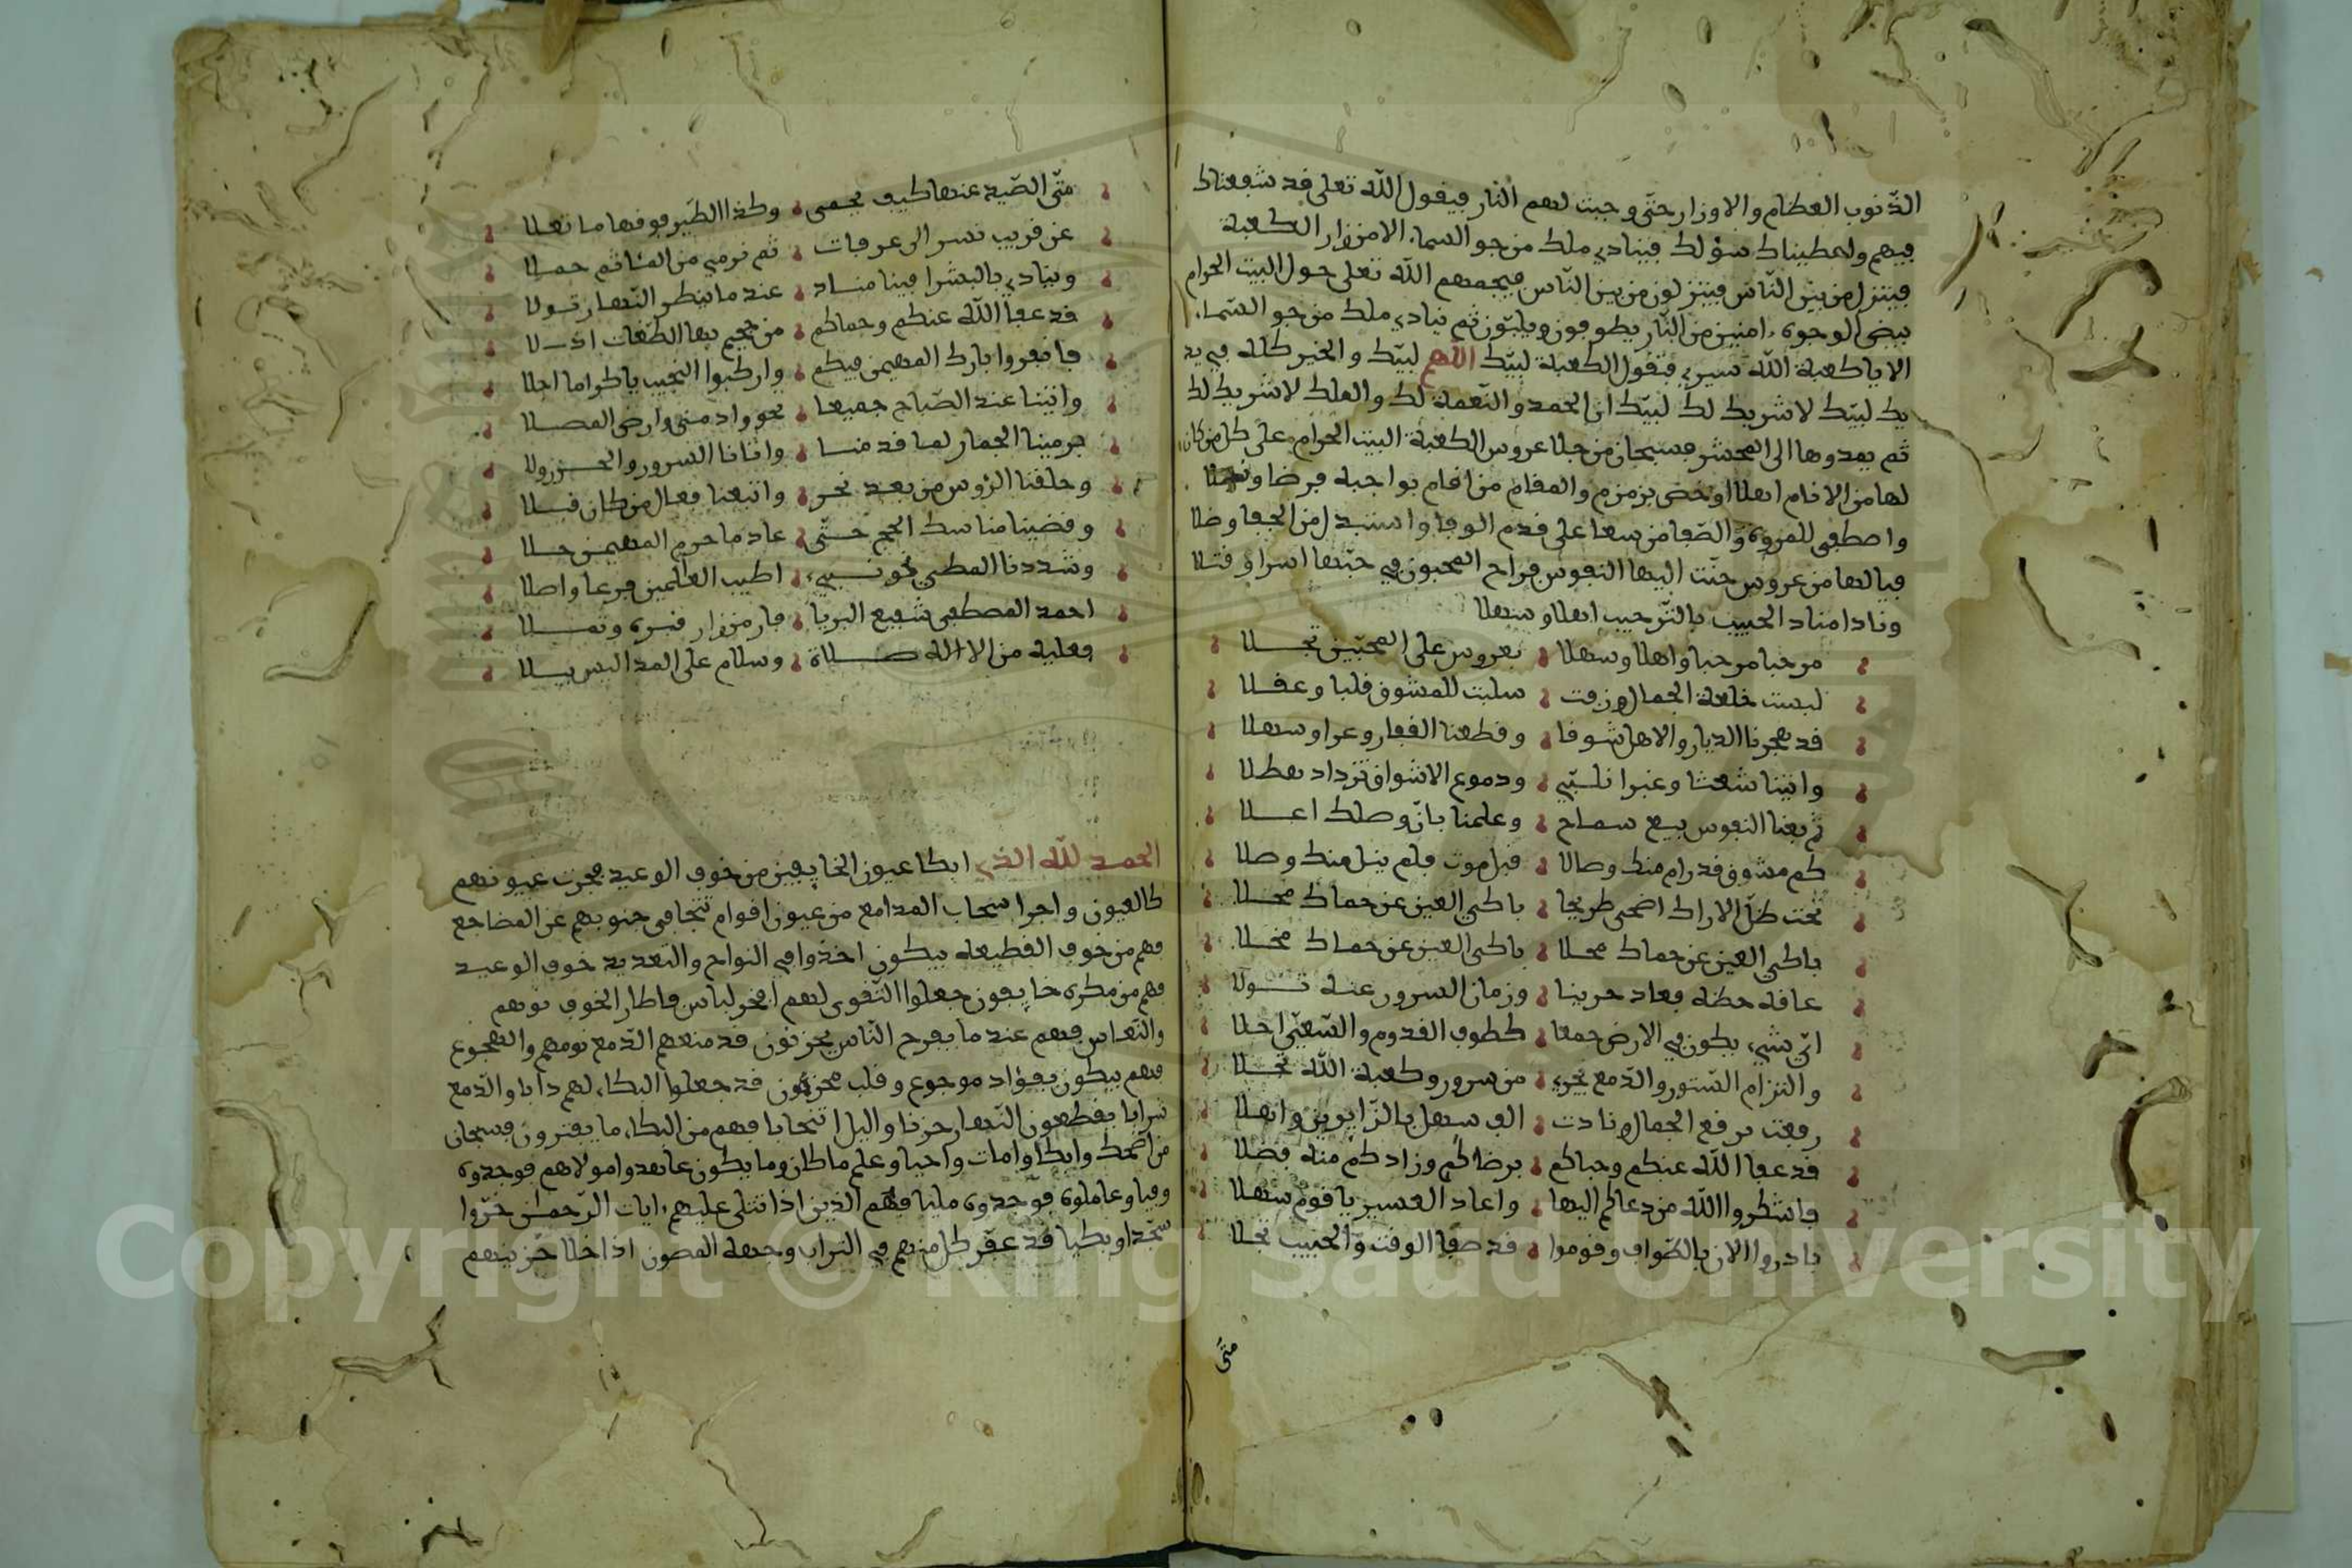 الذنوب العظام والاوزار حتى وجبت لهم النار فيقول الله تعلى قد شفعتك
فيهم ولعطيناك سؤلك فينادي ملك من جو السماء الا من زار الكعبة
فينزل من بين الناس فينزلون من بين الناس فيجمعهم الله تعلى حول البيت الحرام
بيض الوجوه امنين من النار يطوفون ويلبّون ثم ينادي ملك من جو السماء
الا يا كعبة الله سيري فتقول الكعبة لبيّك اللهم لبيّك والخير كله في يد
يك لبيّك لا شريك لك لبيّك ان الحمد والنعمة لك والملك لا شريك لك
ثم يمدوها الى المحشر فسبحان من جلا عروس الكعبة البيت الحرام على كل من كان
لها من الانام اهلا وخص بزمزم والمقام من اقام بواجبه فرضا ونفلا
واصطفى للمروة والصفا من سعا على قدم الوفا واستبدل من الجفا وصلا
فيا لها من عروس حنّت اليها النفوس فراح المحبون في حبّها اسرا وقتلا
ونادا مناد الحبيب بالترحيب اهلا وسهلا
مرحبا مرحبا واهلا وسهلا بعروس على المحبّين تجلا
لبست خلعة الجمال وزفت سلبت للمشوق قلبا وعقلا
قد هجرنا الديار والاهل شوقا وقطعنا القفار وعرا وسهلا
واتينا شعثا وغبرا نلبّي ودموع الاشواق تزداد هطلا
ثم بعنا النفوس بيع سماح وعلمنا بانّ وصلك اعلا
كم مشوق قد رام منك وصالا قبل موت فلم ينل منك وصلا
تحت ظلّ الاراك اضحى طريحا باكي العين عن حماك مخلا
باكي العين عن حماك مخلا باكي العين عن حماك مخلا
عاقه حظه فعاد حزينا وزمان السرور عنه تولا
ايّ شيء يكون في الارض جمعا كطوف القدوم والسّعي احلا
والتزام الستور والدمع يجري من سرور وكعبة الله تجلا
رفعت برقع الجمال ونادت الف سهل بالزايرين واهلا
قد عفا الله عنكم وحباكم برضاكم وزادكم منه فضلا
فاشكروا الله من دعاكم اليها واعاد العسير يا قوم سهلا
بادروا الان بالطواف وقوموا قد صفا الوقت والحبيب تجلا
متى
متّى الصّيد عنها كيف يحمى وكذا الطير فوقها ما تعلا
عن قريب نسر الى عرفات ثم نرمي من المنا ثم حملا
وينادي بالبشرا فينا مناد عند ما ينظر النهار تولا
قد عفا الله عنكم وحماكم من جحيم بها الطغات اذلا
فانفروا بارك المهيمن فيكم واركبوا النجيب يا كراما اجلا
واتينا عند الصباح جميعا نحو واد منى وارض المصلا
جرمينا الجمار لما قد منسا واتانا السرور والحزن ولا
وحلقنا الرّوس من بعد نحر واتبعنا فعال من كان قبلا
وقضينا مناسك الحج حتّى عاد ما حرم المهيمن حلا
وشددنا المطي نحو نبيء اطيب العلمين فرعا واصلا
احمد المصطفى شفيع البريا فاز من زار قبره وتملا
فعليه من الاله صلاة وسلام على المدا ليس يبلا
الحمد لله الذي ابكا عيون الخايفين من خوف الوعيد فجرت عيونهم
كالعيون واجرا سحاب المدامع من عيون اقوام تتجافى جنوبهم عن المضاجع
فهم من خوف القطيعه يبكون اخذوا في النواح والتعديد خوف الوعيد
فهم من مكره خايفون جعلوا التّقوى لهم افخر لباس فاطار الخوف نومهم
والنعاس فهم عند ما يفرح الناس يحزنون قد منعهم الدمع نومهم والهجوع
فهم يبكون بفؤاد موجوع وقلب محزون قد جعلوا البكاء لهم دابا والدمع
شرابا يقطعون النهار حزنا واليل انتحابا فهم من البكاء ما يفترون فسبحان
من اضحك وابكا وامات واحيا وعلم ما كان وما يكون عاهدوا مولاهم فوجدوه
وفيا وعاملوه فوجدوه مليا فهم الذين اذا تتلى عليهم ايات الرحمن خرّوا
سجّدا وبكيا قد عفّر كل منهم في التراب وجهه المصون اذا خلا حزينهم